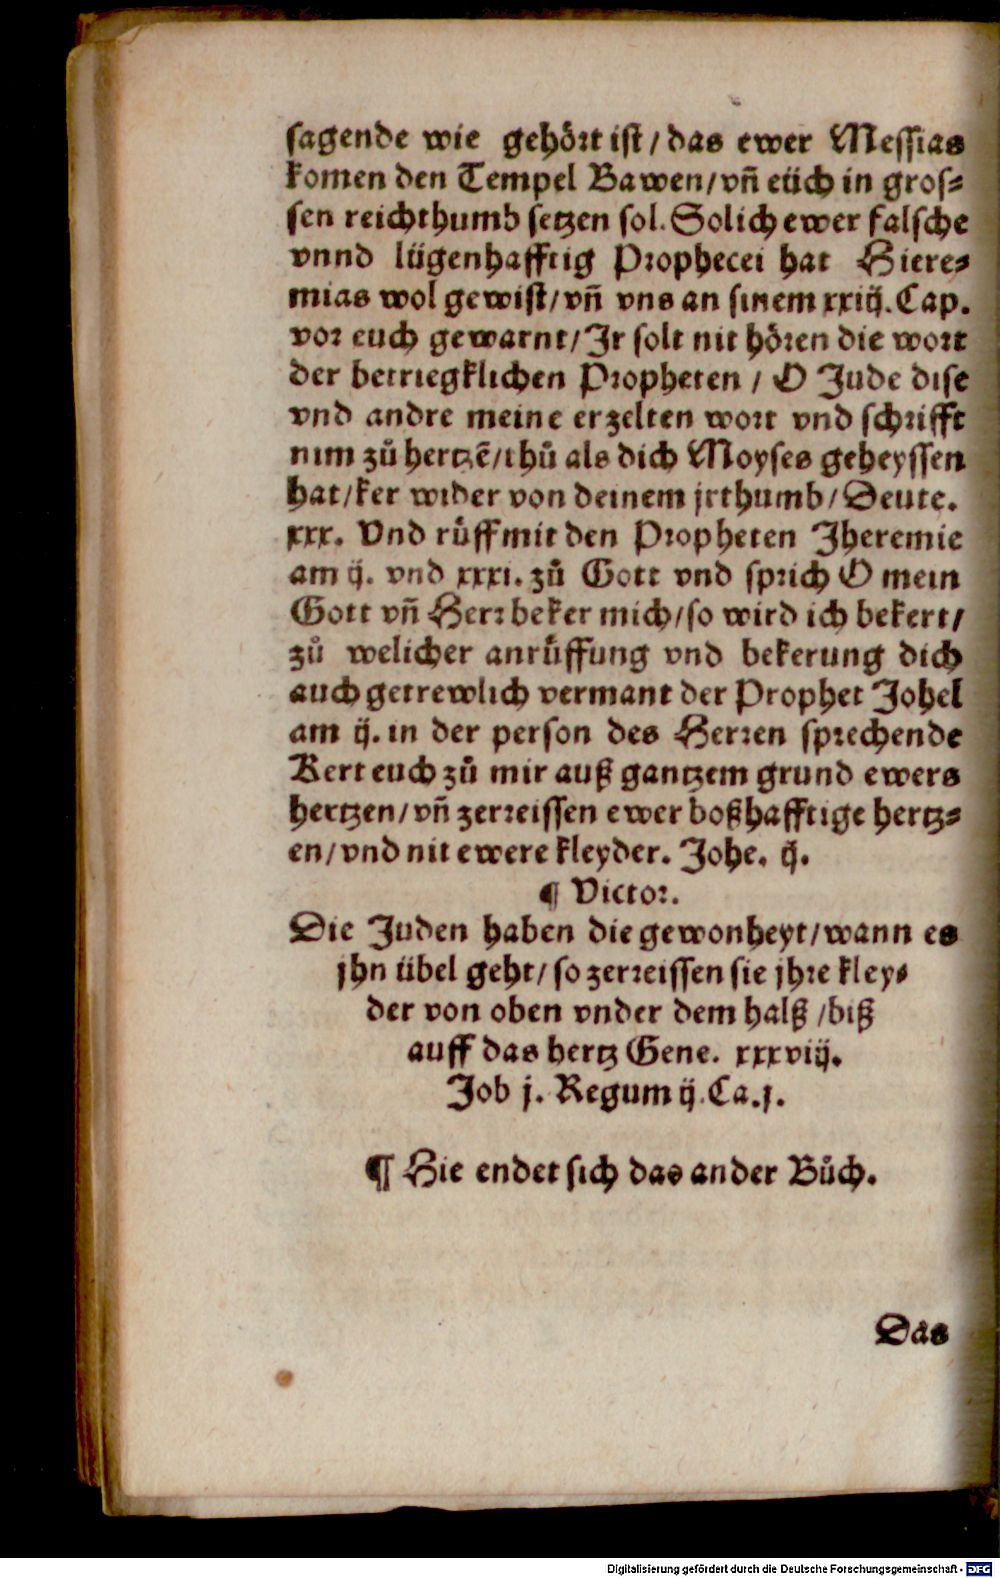 sagende wie gehört ist / das ewer Messias
komen den Tempel Bawen / vñ eüch in gros⸗
sen reichthumb setzen sol. Solich ewer falsche
vnnd lügenhafftig Prophecei hat Hiere⸗
mias wol gewist / vñ vns an sinem xxiij. Cap.
vor euch gewarnt / Ir solt nit hören die wort
der betriegklichen Propheten / O Jude dise
vnd andre meine erzelten wort vnd schrifft
nim zů hertzẽ / thů als dich Moyses geheyssen
hat / ker wider von deinem jrthumb / Deute.
xxx. Vnd růff mit den Propheten Jheremie
am ij. vnd xxxi. zů Gott vnd sprich O mein
Gott vñ Herr beker mich / so wird ich bekert /
zů welicher anrůffung vnd bekerung dich
auch getrewlich vermant der Prophet Johel
am ij. in der person des Herren sprechende
Kert euch zů mir auß gantzem grund ewers
hertzen / vñ zerreissen ewer boßhafftige hertz⸗
en / vnd nit ewere kleyder. Johe. ij.
¶ Victor.
Die Juden haben die gewonheyt / wann es
jhn übel geht / so zerreissen sie jhre kley⸗
der von oben vnder dem halß / biß
auff das hertz Gene. xxxviij.
Job j. Regum ij. Ca. j.
¶ Hie endet sich das ander Bůch.
Das
Digitalisierung gefördert durch die Deutsche Forschungsgemeinschaft - DFG